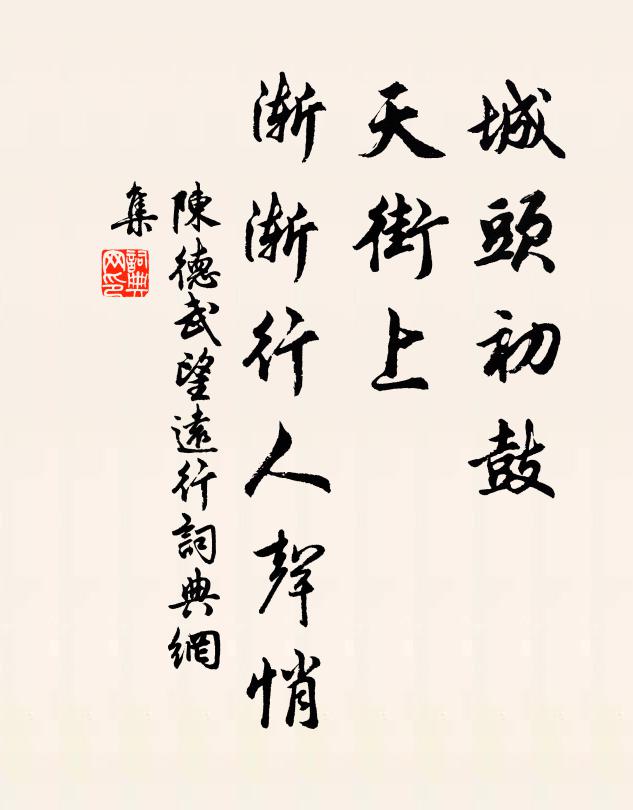 城頭初鼓
天街上
漸漸行人聲悄
陳德武望遠行詞典網
集
詞典网印